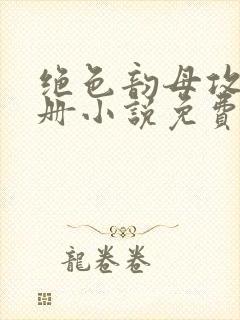 绝色韵母攻
册小説免費
龍卷卷